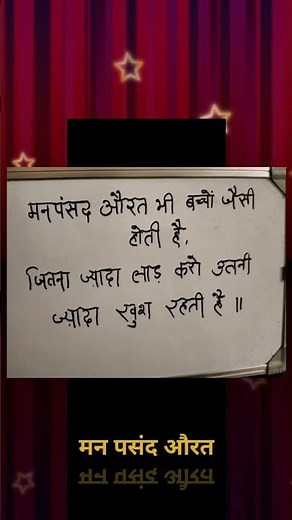 मनपंसद औरत भी बच्चों जैसी
होती है,
जितना ज्यादा लाड़ करो उतनी
ज्यादा खुश रहती है ॥
मन पसंद औरत
मन पसंद औरत